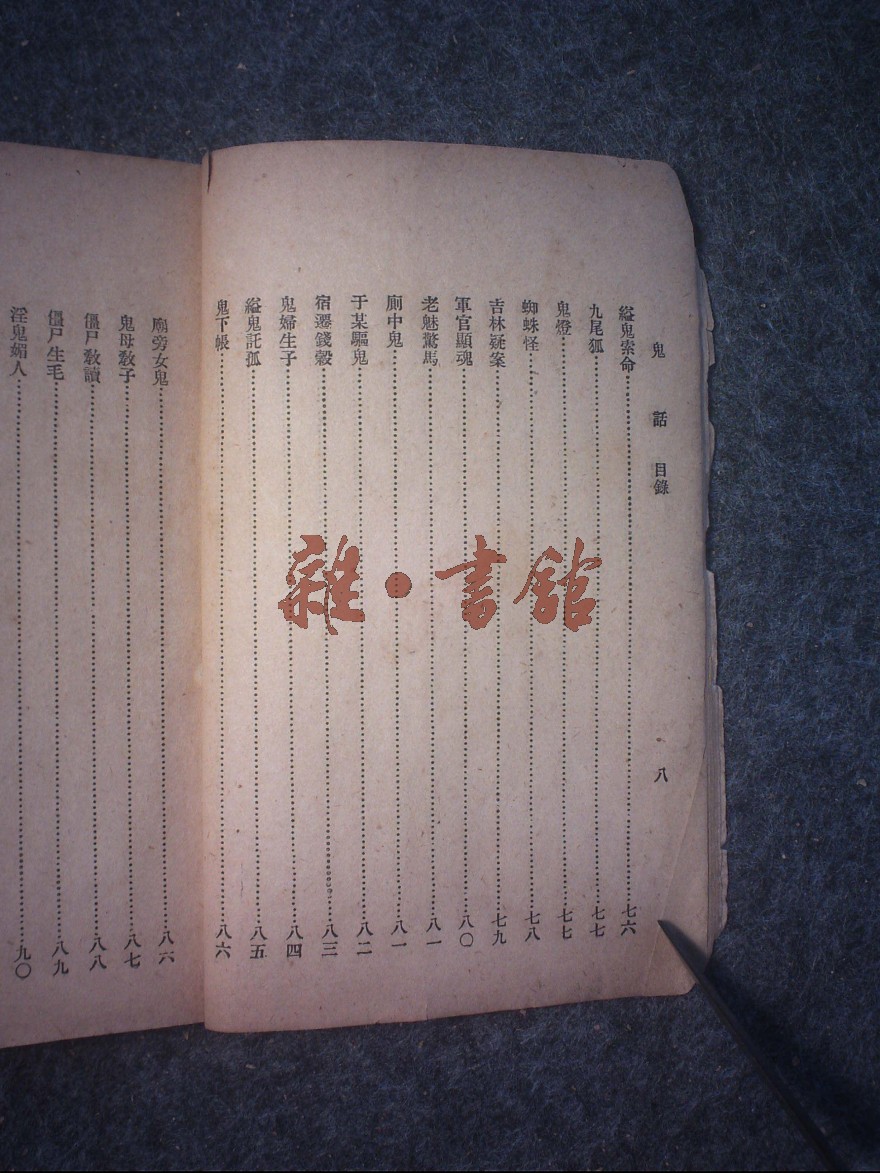 鬼話 目錄 八
縊鬼索命 七六
九尾狐 七七
鬼燈 七七
蜘蛛怪 七八
吉林疑案 七九
軍官顯魂 八〇
老魅驚馬 八一
廁中鬼 八一
于某驅鬼 八二
宿遷錢穀 八三
鬼婦生子 八四
縊鬼託孤 八五
鬼下帳 八六
廟旁女鬼 八六
鬼母敎子 八七
僵尸敎讀 八八
僵尸生毛 八九
淫鬼媚人 九〇
雜·書館